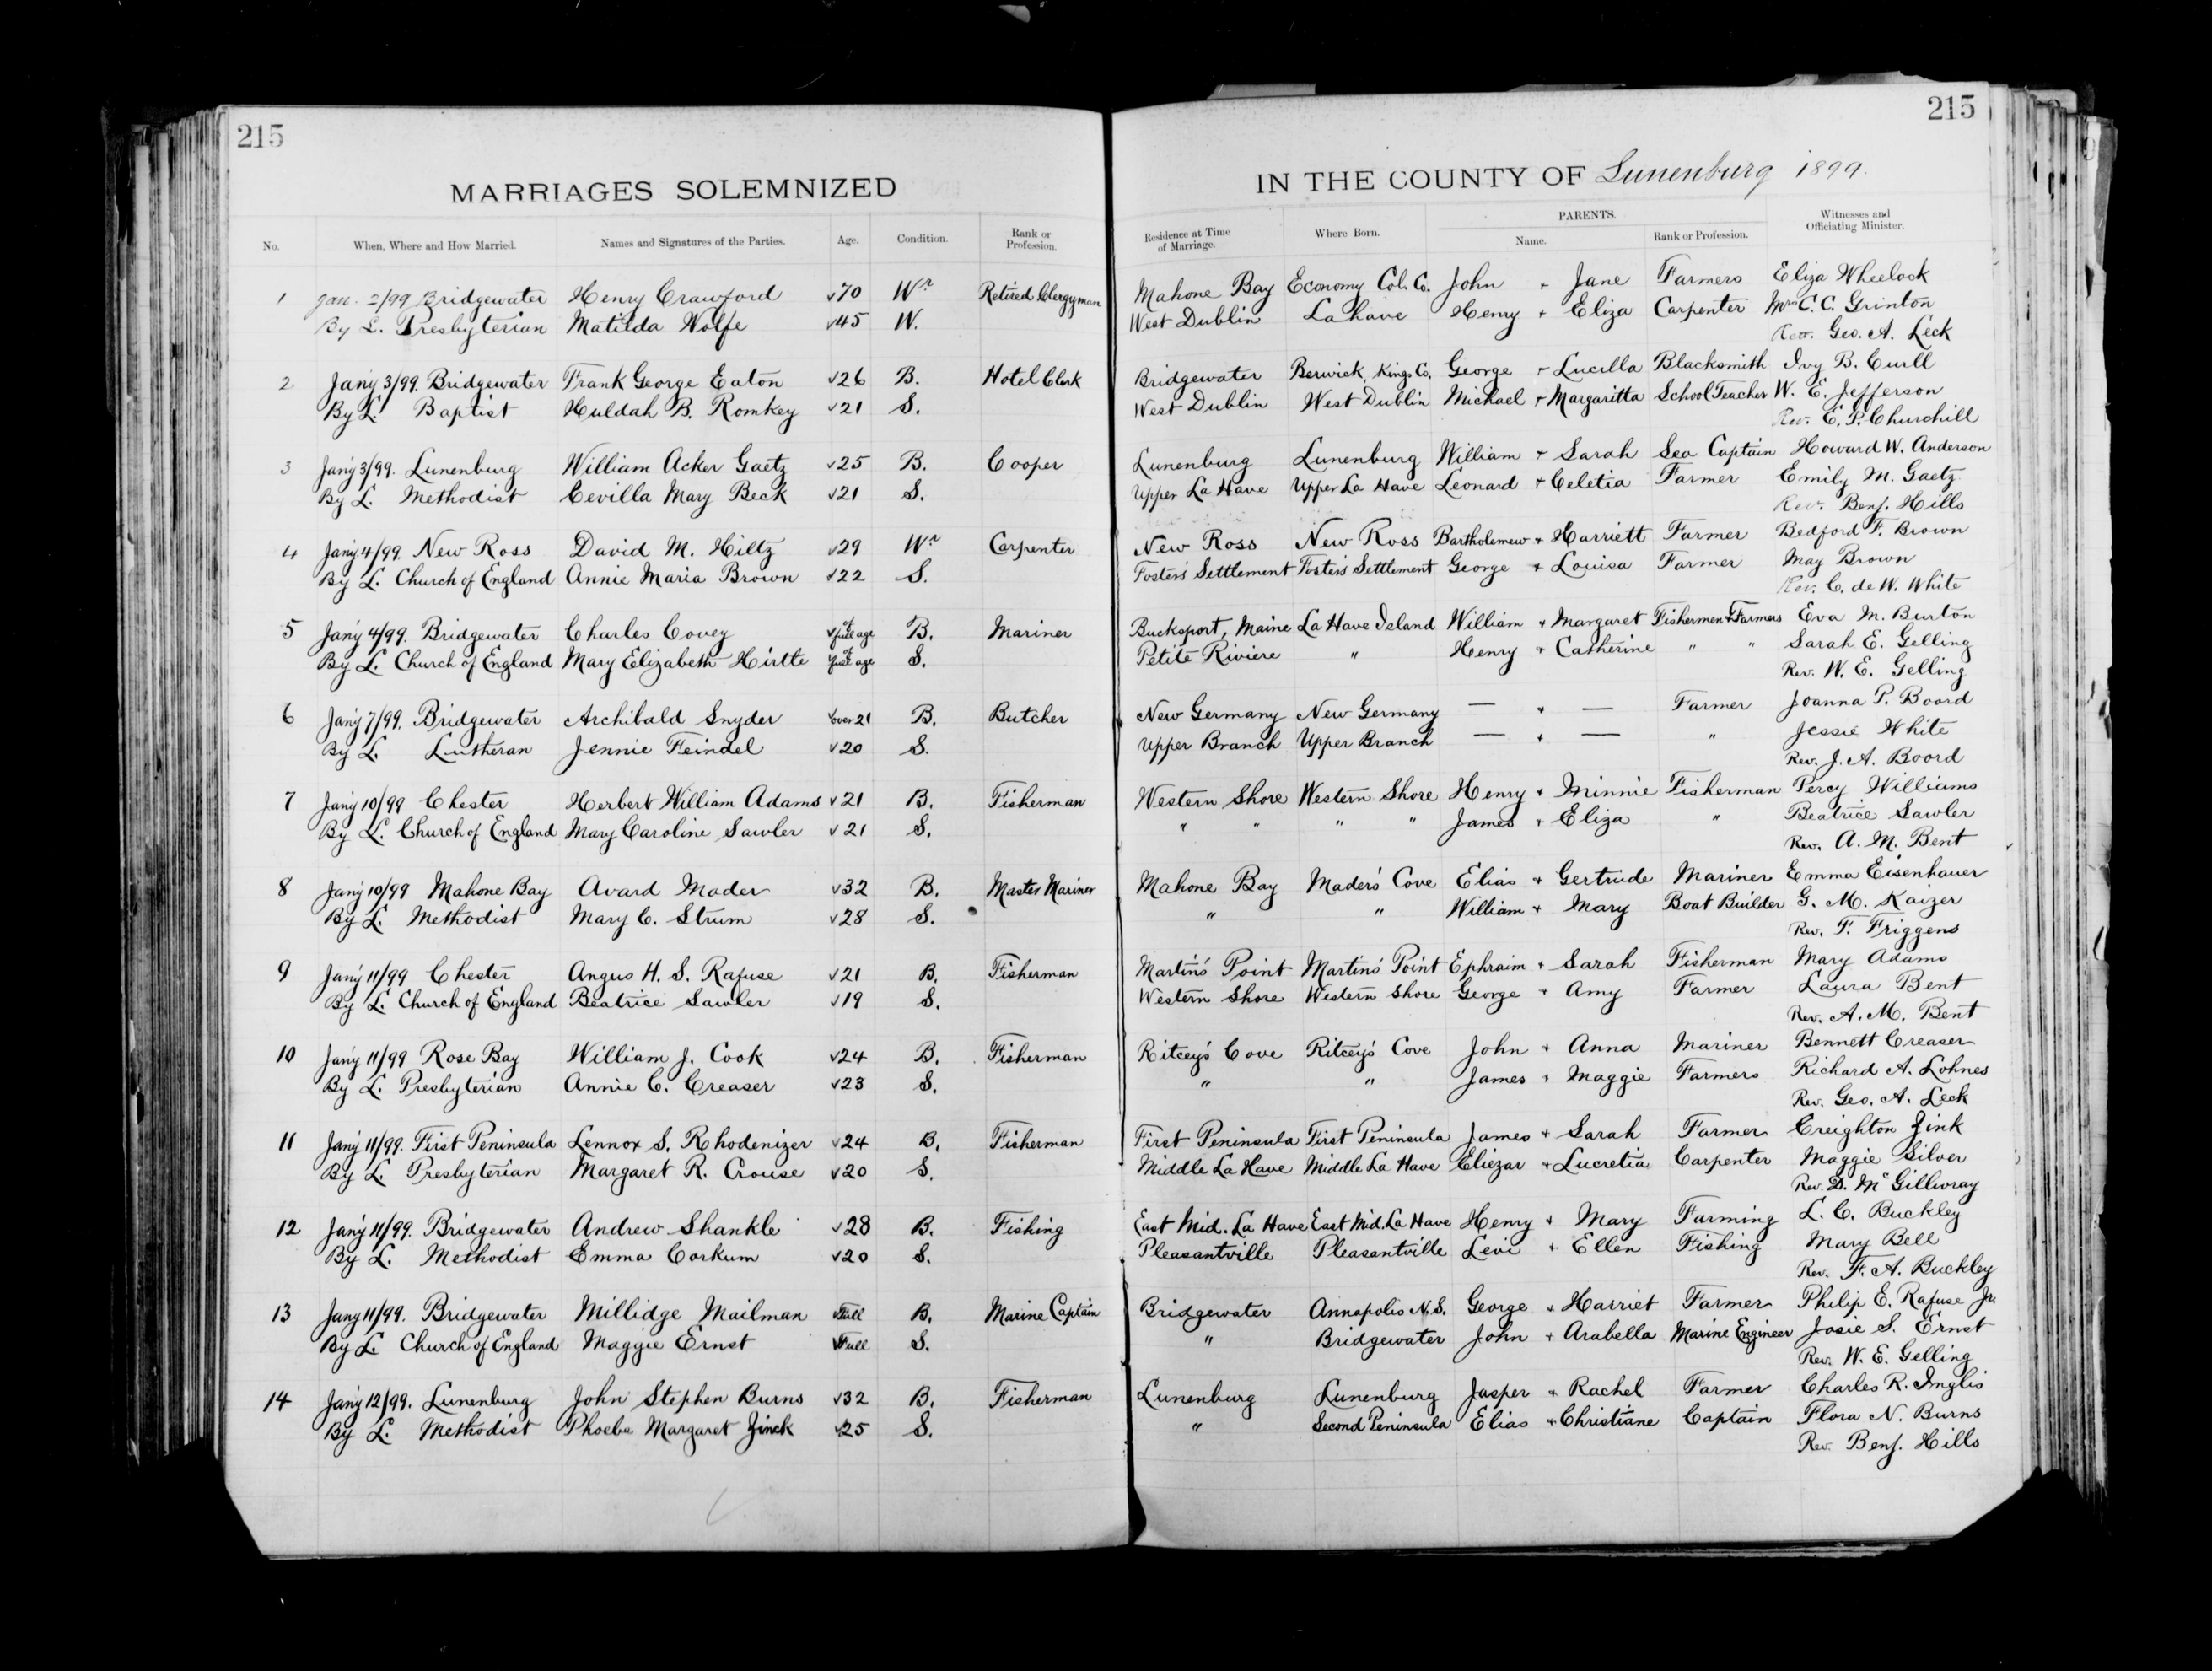 215 215
MARRIAGES SOLEMNIZED IN THE COUNTY OF Lunenburg 1899.
No. When, Where and How Married. Names and Signatures of the Parties. Age. Condition. Rank or Profession. Residence at Time of Marriage. Where Born. PARENTS. Name. Rank or Profession. Witnesses and Officiating Minister.
1 Jan. 2/99 Bridgewater Henry Crawford √70 Wr Retired Clergyman Mahone Bay Economy Col. Co. John + Jane Farmers Eliza Wheelock
By L. Presbyterian Matilda Wolfe √45 W. West Dublin Lahave Henry + Eliza Carpenter Mrs C. C. Grinton
Rev. Geo. A. Leck
2 Jany 3/99. Bridgewater Frank George Eaton √26 B. Hotel Clerk Bridgewater Berwick, Kings Co. George + Lucilla Blacksmith Ivy B. Curll
By L. Baptist Huldah B. Romkey √21 S. West Dublin West Dublin Michael + Margaritta School Teacher W. E. Jefferson
Rev. E. P. Churchill
3 Jany 3/99. Lunenburg William Acker Gaetz √25 B. Cooper Lunenburg Lunenburg William + Sarah Sea Captain Howard W. Anderson
By L. Methodist Cevilla Mary Beck √21 S. Upper La Have Upper La Have Leonard + Celetia Farmer Emily M. Gaetz
Rev. Benj. Hills
4 Jany 4/99. New Ross David M. Hiltz √29 Wr Carpenter New Ross New Ross Bartholemew + Harriett Farmer Bedford F. Brown
By L. Church of England Annie Maria Brown √22 S. Foster's Settlement Foster's Settlement George + Louisa Farmer May Brown
Rev. C. de W. White
5 Jany 4/99. Bridgewater Charles Covey √ of full age B. Mariner Bucksport, Maine La Have Island William + Margaret Fishermen + Farmers Eva M. Burton
By L. Church of England Mary Elizabeth Hirtle of full age S. Petite Riviere " Henry + Catherine " " Sarah E. Gelling
Rev. W. E. Gelling
6 Jany 7/99. Bridgewater Archibald Snyder √over 21 B. Butcher New Germany New Germany — + — Farmer Joanna P. Boord
By L. Lutheran Jennie Feindel √20 S. Upper Branch Upper Branch — + — " Jessie White
Rev. J. A. Boord
7 Jany 10/99 Chester Herbert William Adams √21 B. Fisherman Western Shore Western Shore Henry + Minnie Fisherman Percy Williams
By L. Church of England Mary Caroline Sawler √21 S. " " " " James + Eliza " Beatrice Sawler
Rev. A. M. Bent
8 Jany 10/99 Mahone Bay Avard Mader √32 B. Master Mariner Mahone Bay Mader's Cove Elias + Gertrude Mariner Emma Eisenhauer
By L. Methodist Mary C. Strum √28 S. " " William + Mary Boat Builder G. M. Kaizer
Rev. F. Friggens
9 Jany 11/99 Chester Angus H. S. Rafuse √21 B. Fisherman Martin's Point Martin's Point Ephraim + Sarah Fisherman Mary Adams
By L. Church of England Beatrice Sawler √19 S. Western Shore Western Shore George + Amy Farmer Laura Bent
Rev. A. M. Bent
10 Jany 11/99 Rose Bay William J. Cook √24 B. Fisherman Ritcey's Cove Ritcey's Cove John + Anna Mariner Bennett Creaser
By L. Presbyterian Annie C. Creaser √23 S. " " James + Maggie Farmers Richard A. Lohnes
Rev. Geo. A. Leck
11 Jany 11/99. First Peninsula Lennox S. Rhodenizer √24 B. Fisherman First Peninsula First Peninsula James + Sarah Farmer Creighton Zink
By L. Presbyterian Margaret R. Crouse √20 S. Middle La Have Middle La Have Eliezar + Lucretia Carpenter Maggie Silver
Rev. D. McGillivray
12 Jany 11/99. Bridgewater Andrew Shankle √28 B. Fishing East Mid. La Have East Mid. La Have Henry + Mary Farming L. C. Buckley
By L. Methodist Emma Corkum √20 S. Pleasantville Pleasantville Levi + Ellen Fishing Mary Bell
Rev. F. A. Buckley
13 Jany 11/99. Bridgewater Millidge Mailman √Full B. Marine Captain Bridgewater Annapolis N.S. George + Harriet Farmer Philip E. Rafuse Jr.
By L. Church of England Maggie Ernst √Full S. " Bridgewater John + Arabella Marine Engineer Josie S. Ernst
Rev. W. E. Gelling
14 Jany 12/99. Lunenburg John Stephen Burns √32 B. Fisherman Lunenburg Lunenburg Jasper + Rachel Farmer Charles R. Inglis
By L. Methodist Phoebe Margaret Zinck √25 S. " Second Peninsula Elias + Christiane Captain Flora N. Burns
Rev. Benj. Hills